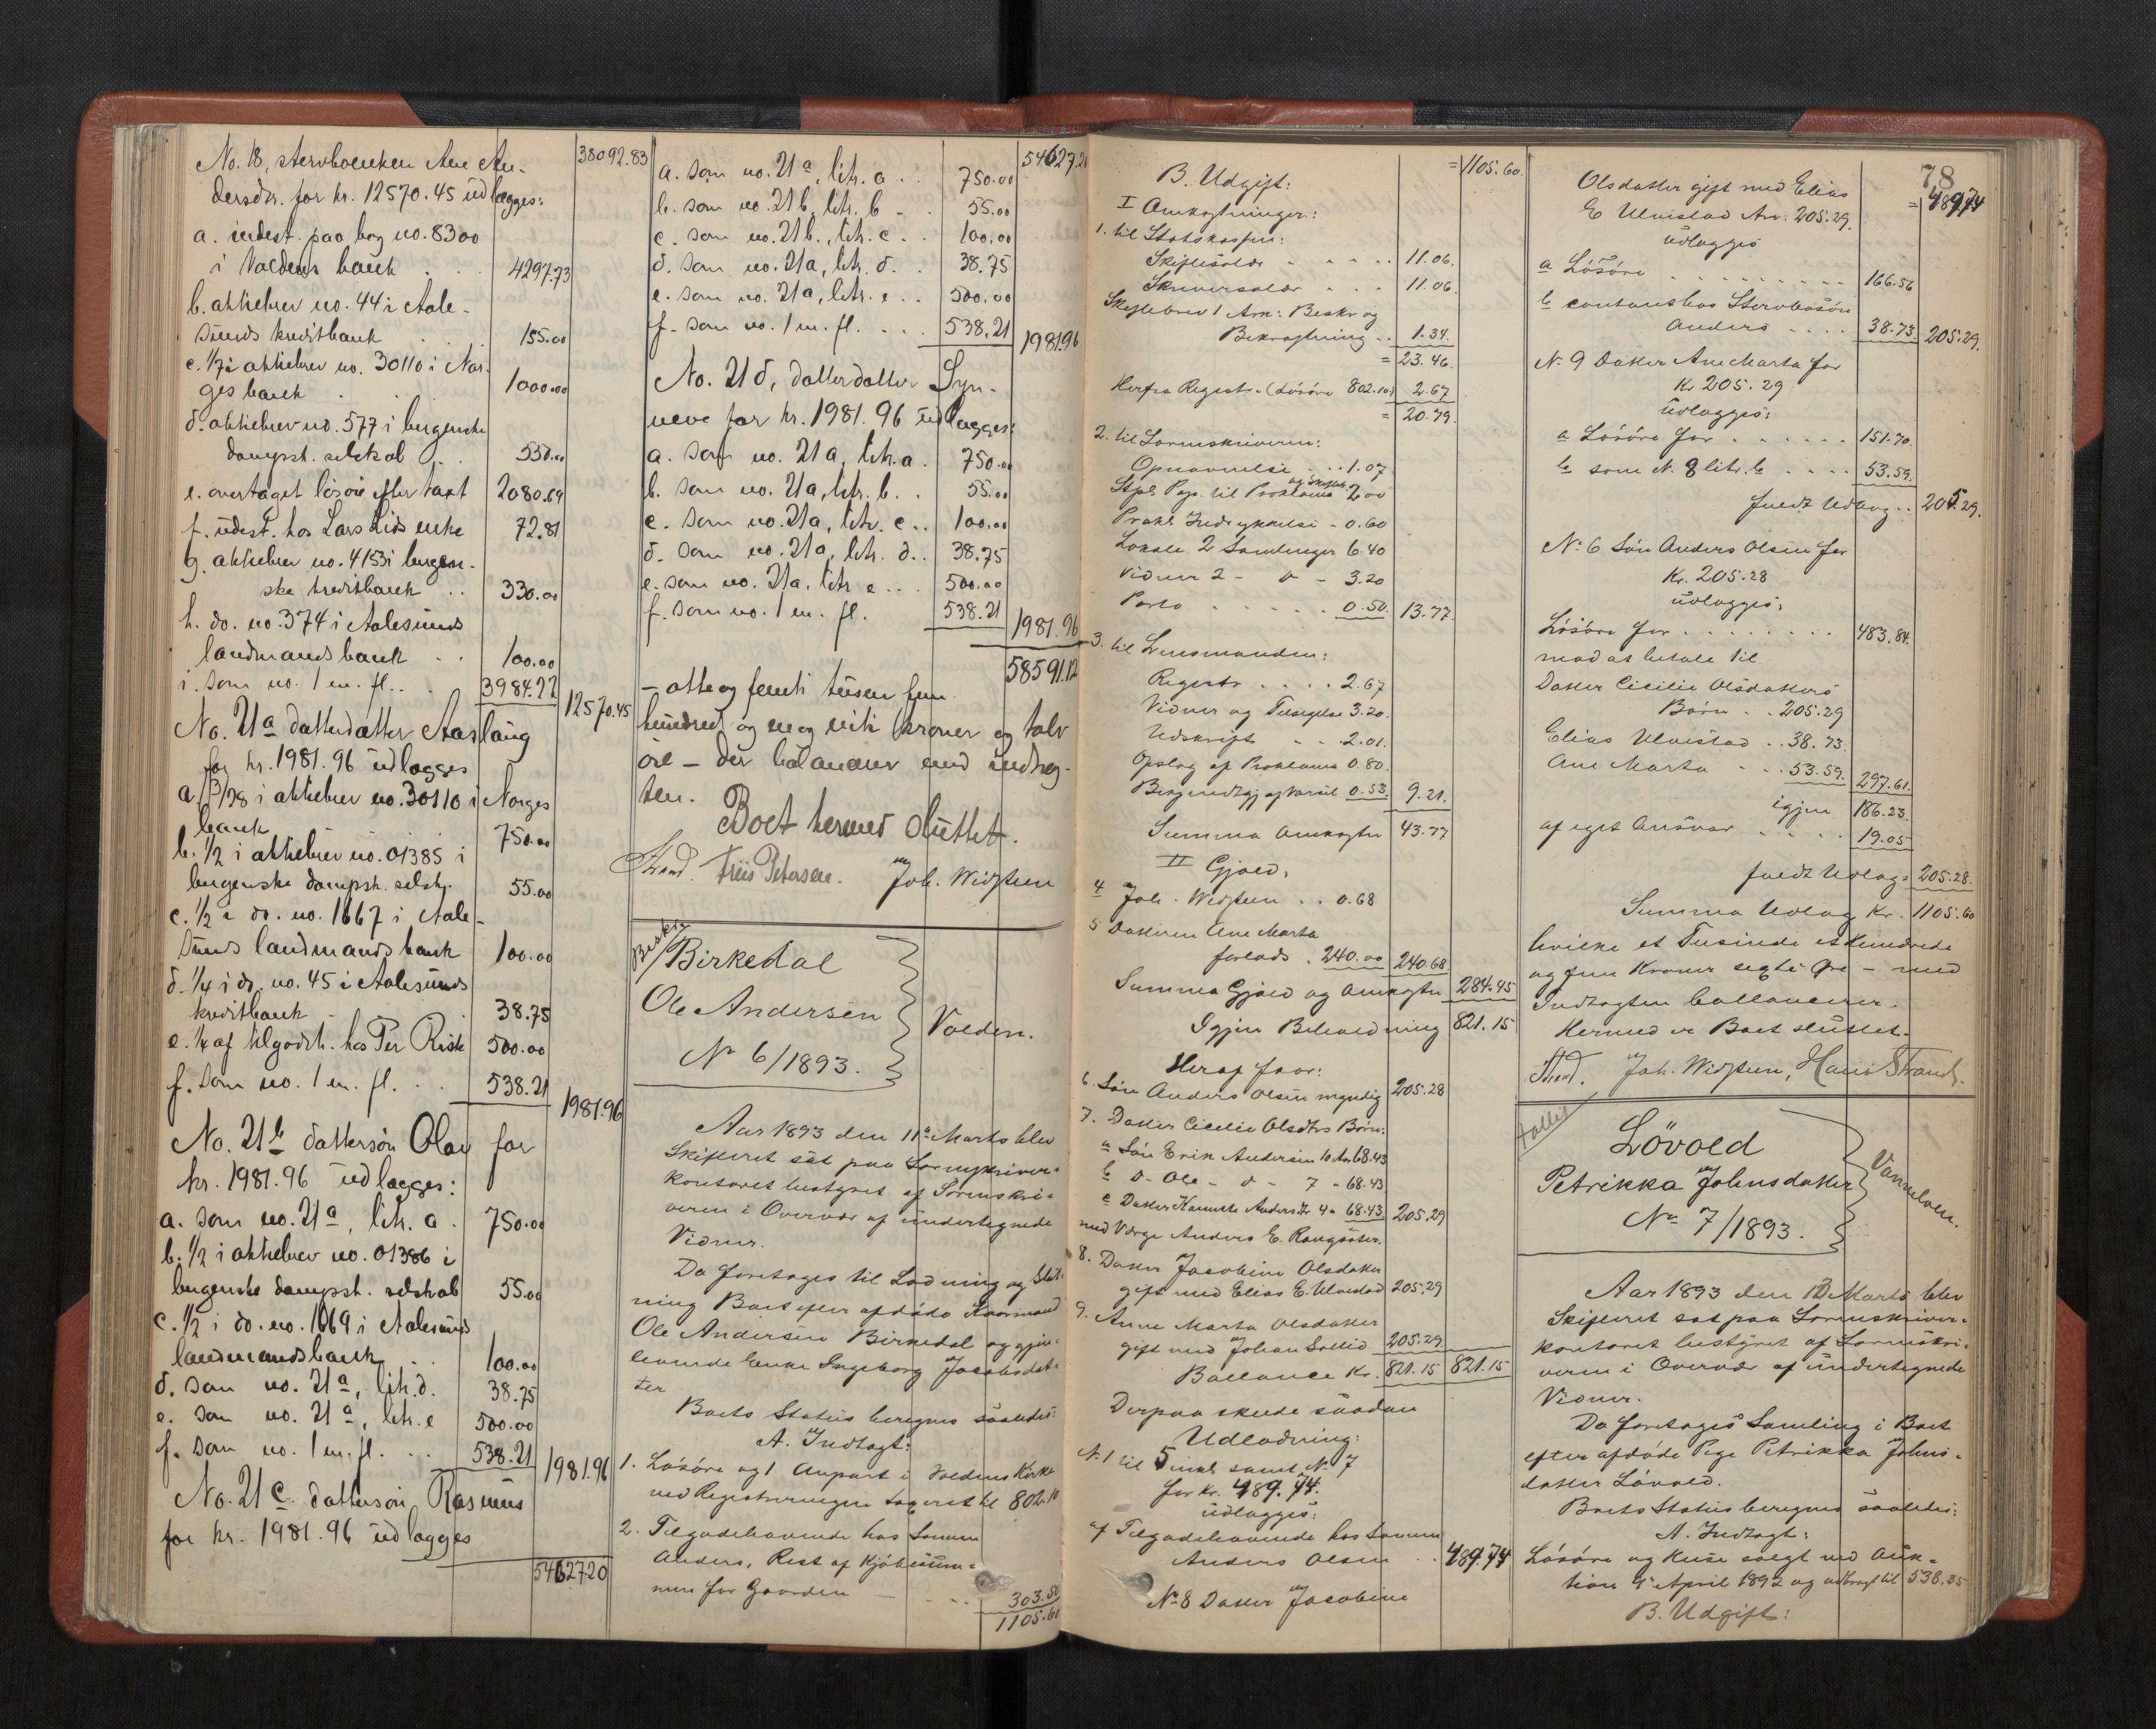 38092.83
No. 18, stervboenken Ane An-
dersdr. for kr. 12570.45 udlægges:
a. indest. paa bog no. 8300
i Voldens bank . . 4297.73
b. aktiebrev no. 44 i Aale-
sunds kreditbank . 155.00
c. 1/7 i aktiebrev no. 30110 i Nor-
ges bank . 1000.00
d. aktiebrev no. 577 i bergenske
dampsk. selskab . . 550.00
e. overtaget løsøre efter taxt 2080.69
f. udest. hos Lars Lids enke 72.81
g. aktiebrev no. 4153 i bergen-
ske kreditbank . . 330.00
h. do. no. 374 i Aalesunds
landmandsbank . . 100.00
i. som no. 1 m. fl. . . 3984.22 12570.45
No. 21 a datterdatter Aaslaug
for kr. 1981.96 udlægges
a. 3/28 i aktiebrev no. 30110 i Norges
bank 750.00
b. 1/2 i aktiebrev no. 01385 i
bergenske dampsk. selsk. 55.00
c. 1/2 i do. no. 1667 i Aale-
sunds landmandsbank 100.00
d. 1/4 i do. no. 45 i Aalesunds
kreditbank . . 38.75
e. 1/4 af tilgodeh. hos Per Riste 500.00
f. som no. 1 m. fl. . . 538.21 1981.96
No. 21 b dattersøn Olav for
kr. 1981.96 udlægges:
a. som no. 21 a, litr. a . 750.00
b. 1/2 i aktiebrev no. 01386 i
bergenske dampsk. selskab 55.00
c. 1/2 i do. no. 1669 i Aalesunds
landmandsbank . . 100.00
d. som no. 21 a, litr. d. 38.75
e. som no. 21 a, litr. e 500.00
f. som no. 1 m. fl. . . 538.21 1981.96
No. 21 c. dattersøn Rasmus
for kr. 1981.96 udlægges
54627.20
54627.20
a. som no. 21 a, litr. a . . 750.00
b. som no. 21 b, litr. b - . 55.00
c. som no. 21 b., litr. c . . 100.00
d. som no. 21 a, litr. d. . 38.75
e. som no. 21 a, litr. e . . 500.00
f. som no. 1 m. fl. . . . 538.21 1981.96
No. 21 d, datterdatter Syn-
neve for kr. 1981.96 udlægges:
a. som no. 21 a, litr. a . 750.00
b. som no. 21 a, litr. b. . 55.00
c. som no. 21 a, litr. c . . 100.00
d. som no. 21 a, litr. d. . 38.75
e. som no. 21 a. litr e . . . 500.00
f. som no. 1 m. fl. 538.21 1981.96
58591.12
- otte og femti tusen fem
hundred og en og niti kroner og tolv
øre - der balancerer med indtæg-
ten.
Boet hermed sluttet.
Strand. Friis Petersen. Joh. Widsteen
Beskr.
Birkedal
Ole Andersen
No 6/1893.
Volden.
Aar 1893 den 11te Marts blev
Skifteret sat paa Sorenskriver-
kontoret bestyret af Sorenskri-
veren i Overvær af undertegnede
Vidner.
Da foretoges til Lodning og Slut-
ning Boet efter afdøde Kaarmand
Ole Andersen Birkedal og gjen-
levende Enke Ingeborg Jacobsdat-
ter
Boets Status beregnes saaledes:
A. Indtægt:
1. Løsøre og 1 Anpart i Voldens Kirke
ved Registreringen taxeret til 802.10
2. Tilgodehavende hos Sønnen
Anders, Rest af Kjøbesum-
men for Gaarden - . . 303.50
1105.60
= 1105.60
B. Udgift:
I Omkostninger:
1. til Statskassen:
Skiftesalær - - . . . 11.06.
Skriversalær . . . 11.06.
Skiftebrev 1 Ark: Beskr og
Bekræftning . . 1.34.
= 23.46.
Herfra Registr. (Løsøre 802.10) 2.67
= 20.79.
2. til Sorenskriveren:
Opnævnelse . . 1.07
og Skifteb.
Stpl. Pap. til Proklama 2.00
Prokl. Indrykkelse - 0.60
Lokale 2 Samlinger 6.40
Vidner 2 - o - 3.20
Porto . . . . . 0.50. 13.77
3. til Lensmanden:
Registr . . . . 2.67
Vidner og Tilsigelse 3.20.
Udskrift - - . 2.01.
Opslag af Proklama 0.80.
0.53. 9.21.
Summa Omkostn 43.77
II Gjæld.
4 Joh. Widsteen . . 0.68
5 Datteren Ane Marta
forlods . 240.00 240.68
Summa Gjæld og Omkostn 284.45
Igjen Beholdning 821.15
Heraf faar:
6. Søn Anders Olsen myndig 205.28
7. Datter Cicilie Olsdtrs Børn:
a Søn Erik Andersen 10 Aar 68.43
b D- Ole - o - 7 - 68.43
c Datter Andersdtr 4 - 68.43 205.29
med Værge Anders E.
8. Datter Jacobine Olsdatter
gift med Elias E. Ulvestad 205.29
9. Anne Marta Olsdatter
gift med Johan Sollid 205.29
Ballance Kr. 821.15 821.15
Derpaa skede saadan
Udlodning:
No. 1 til 5 inkl. samt No. 7
for Kr. 489.74.
udlægges:
af Tilgodehavende hos Sønnen
Anders Olsen . . 489.74
No. 8 Datter Jacobine
78
= 489.74
Olsdatter gift med Elias
E Ulvestad Arv. 205.29.
udlægges
a Løsøre - - - - - - - - 166.56
b contant hos Stervbosøn
Anders . . . . 38.73. 205.29.
No. 9 Datter Ane Marta for
Kr 205.29
udlægges:
a Løsøre for . . . . . . 151.70.
b som No. 8 litr. b . . . . 53.59.
fuldt Udlæg . . 205.29.
No. 6 Søn Anders Olsen for
Kr. 205.28
udlægges:
Løsøre for . . . . . . . . 483.84.
mod at betale til
Datter Cicilie Olsdatters
Børn . . 205.29
Elias Ulvestad . . 38.73.
Ane Marta . . . 53.59. 297.61.
igjen 186.23.
af eget Ansvar . . . . 19.05
fuldt Udlæg = 205.28.
Summa Udlæg Kr. 1105.60
hvilke et Tusinde et Hundrede
og fem Kroner segti Øre - med
Indtægten ballancerer.
Hermed er Boet sluttet.
Strand. Joh. Widsteen, Hans Strand.
Løvold
Petrikka Johnsdatter
No 7/1893.
Vannelven.
Aar 1893 den Marts blev
Skifteret sat paa Sorenskriver-
kontoret bestyret af Sorenskri-
veren i Overvær af undertegnede
Vidner.
Da foretoges Samling i Boet
efter afdøde Pige Petrikka Johns-
datter Løvold.
Boets Status beregnes saaledes:
A. Indtægt:
Løsøre og Huse solgt ved Auk-
tion April 1892 og udbragt til 538.35
B. Udgift: